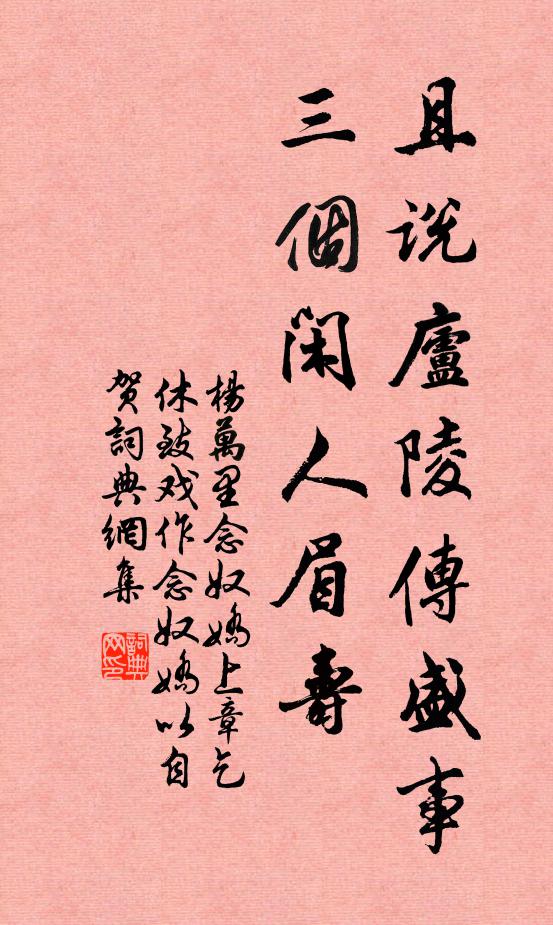 且說廬陵傳盛事
三個閑人眉壽
楊萬里念奴嬌上章乞
休致戏作念奴嬌以自
贺詞典網集
詞典
网印